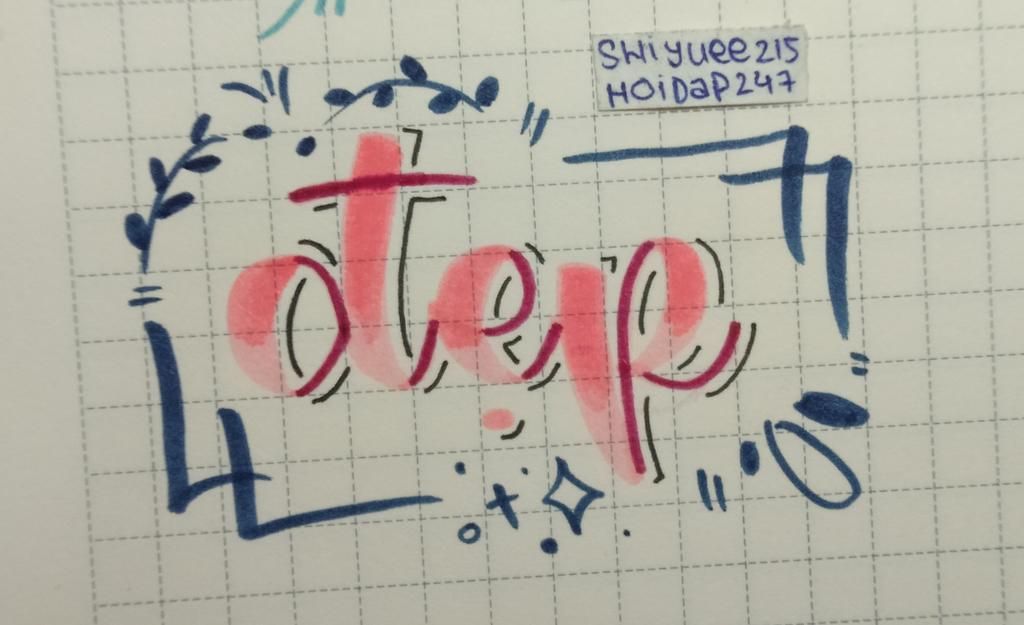 SHiYuee215
HOiDaP247
đẹp